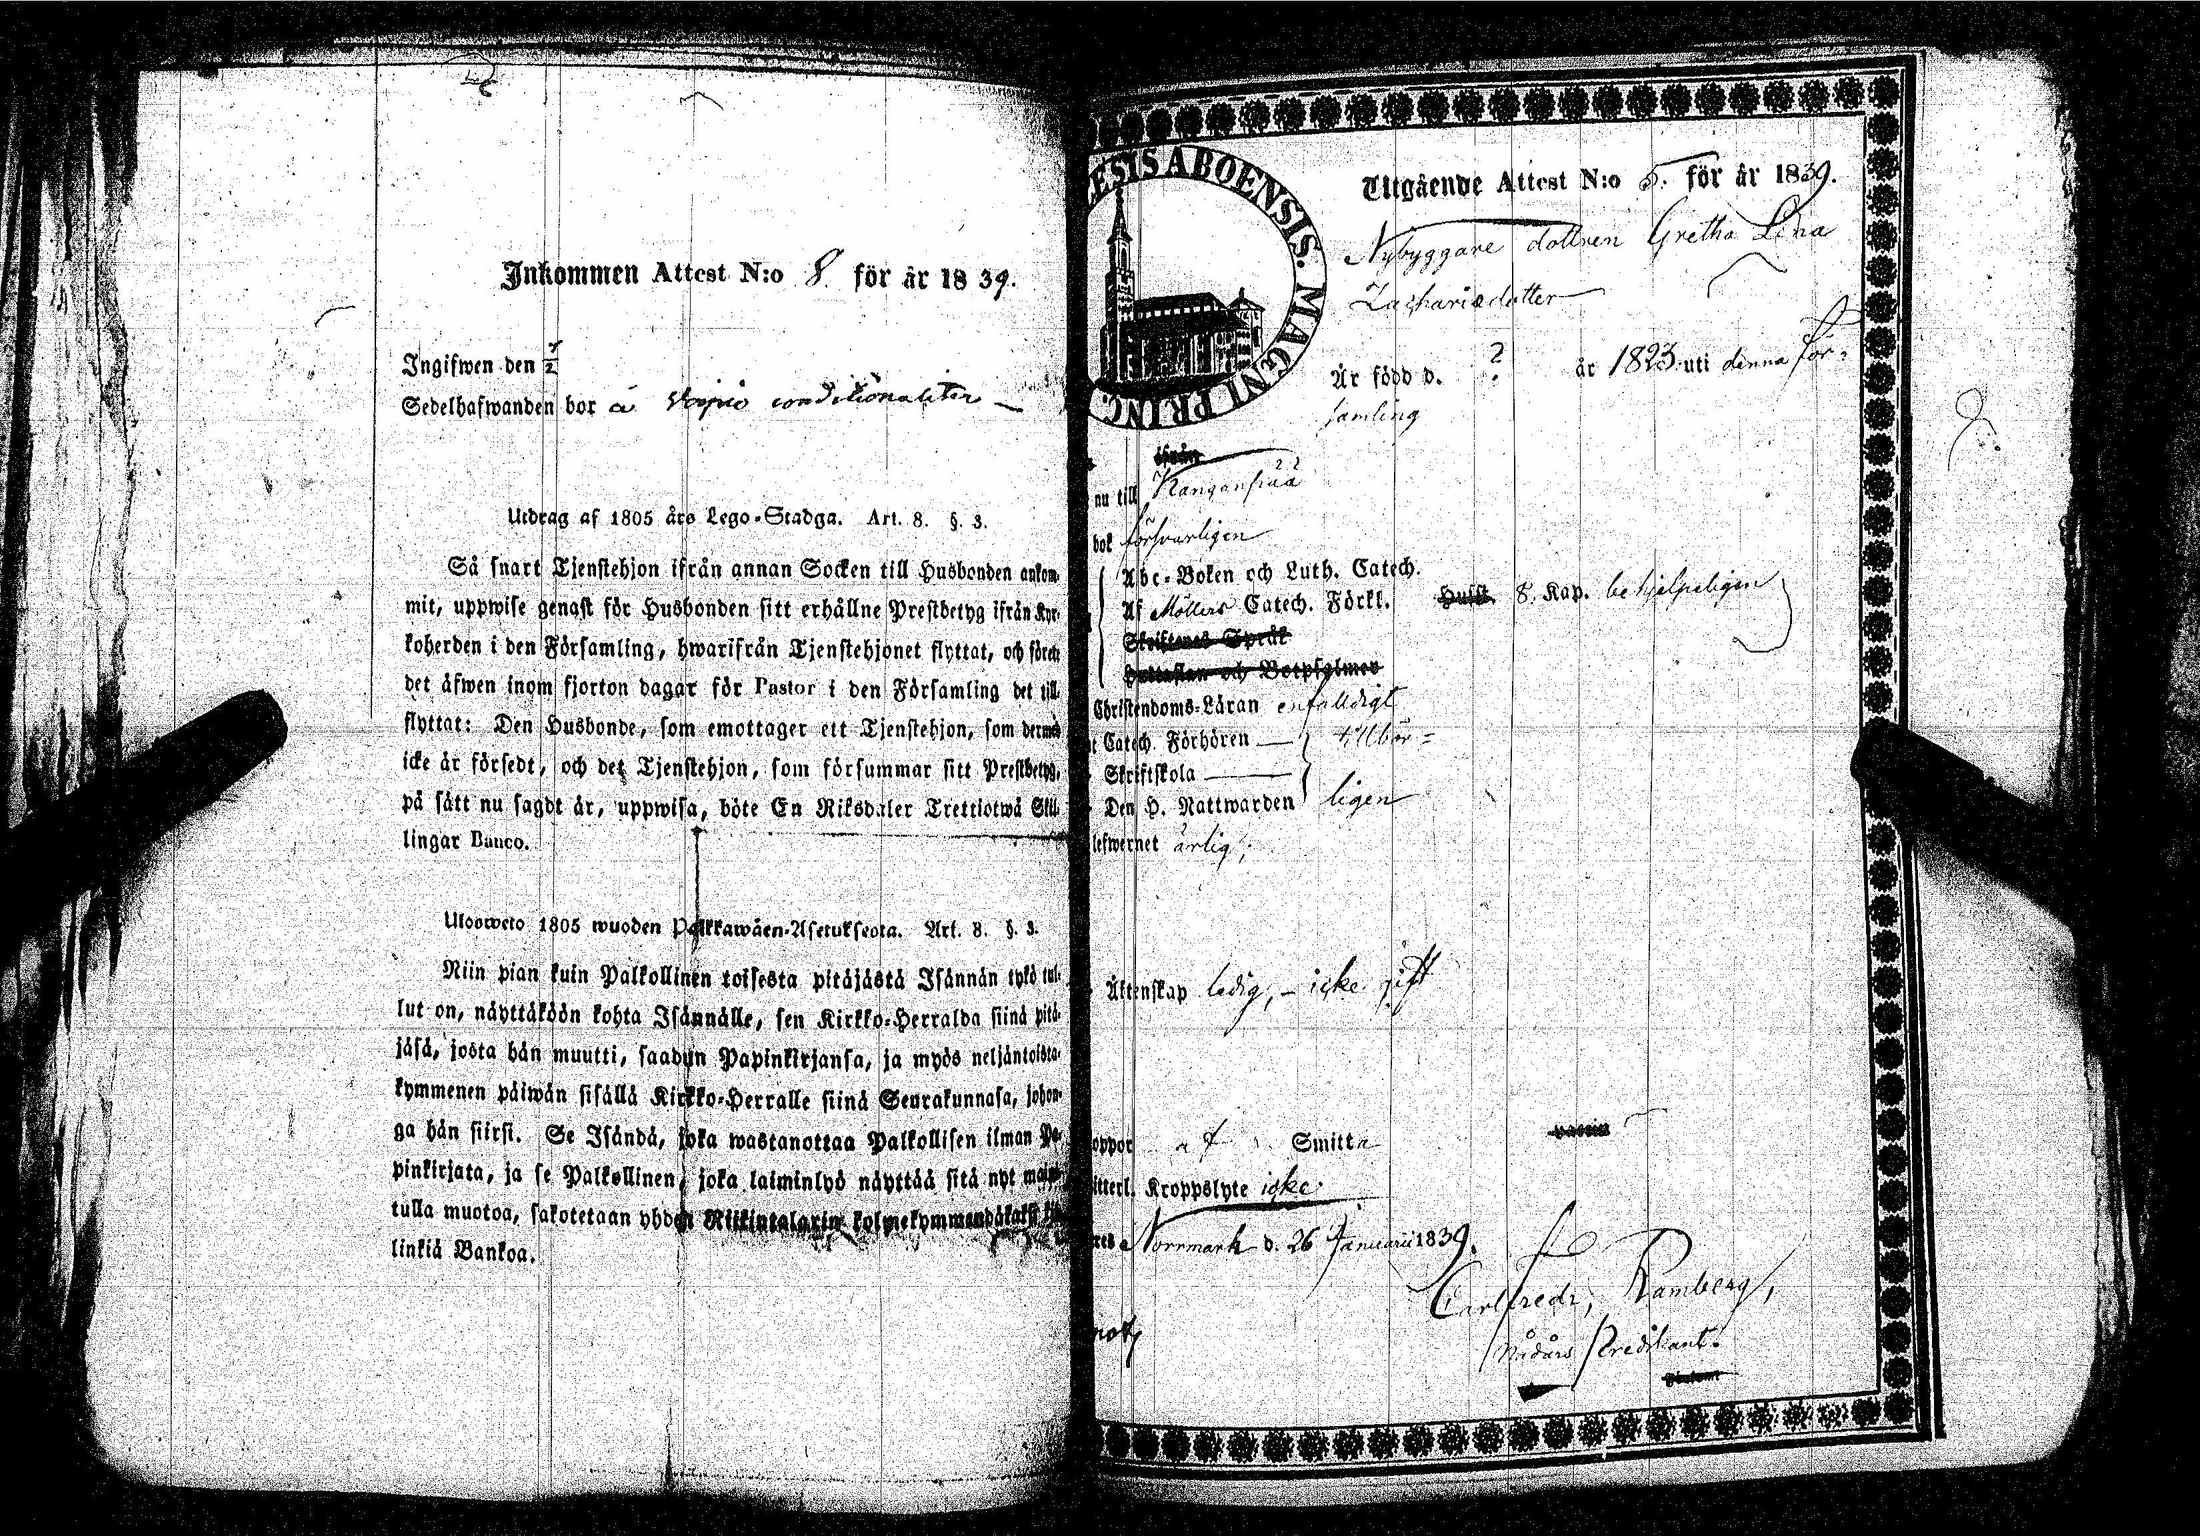 Inkommen Attest N:o 8. för år 1839.
Ingifwen den 7/2
Sedelhafwanden bor å conditionaliter
Utdrag af 1805 års Lego-Stadga. Art. 8. §. 3.
Så snart Tjenstehjon ifrån annan Socken till Husbonden ankom-
mit, uppwise genast för Husbonden sitt erhållne Prestbetyg ifrån Kyr-
koherden i den Församling, hwarifrån Tjenstehjonet flyttat, och förete
det äfwen inom fjorton dagar för Pastor i den Församling det till
flyttat: Den Husbonde, som emottager ett Tjenstehjon, som dermed
icke är försedt, och det Tjenstehjon, som försummar sitt Prestbetyg,
på sätt nu sagdt är, uppwisa, böte En Riksdaler Trettiotwå Skil-
lingar Banco.
Ulosweto 1805 wuoden Palkkawäen-Asetuksesta. Art. 8. §. 3.
Niin pian kuin Palkollinen toisesta pitäjästä Isännän tykö tul-
lut on, näyttäköön kohta Isännälle, sen Kirkko-Herralda siinä pitä-
jäsä, josta hän muutti, saadun Papinkirjansa, ja myös neljäntoista-
kymmenen päiwän sisällä Kirkko-Herralle siinä Seurakunnasa, johon-
ga hän siirsi. Se Isändä, joka wastanottaa Palkollisen ilman Pa-
pinkirjata, ja se Palkollinen, joka laiminlyö näyttää sitä nyt mai-
tulla muotoa, sakotetaan yhden Riikintalarin kolmekymmendäkaksi kil-
linkiä Bankoa.
ESIS ABOENSIS. MAGNI PRINC.
Utgående Attest N:o 5. för år 1839.
Nybyggare dottren Gretha Lena
Zachariedotter
Är född d. ? år 1823 uti denna För-
samling
ifrån
nu till Kangansuu
bok försvarligen
Abc-Boken och Luth. Catech.
Af Möllers Catech. Förkl. Hust. 8. Kap. behjelpeligen
Skriftenes Språk
Hustaflan och Botpsalmer
Christendoms-Läran enfaldigt
Catech. Förhören tillbör-
Skriftskola
Den H. Nattwarden ligen
lefwernet ärlig;
Äktenskap ledig, - icke gift
oppor af Smitta
itterl. Kroppslyte icke
Norrmark d. 26 Januarii 1839.
Carl Fredr. Ramberg,
Nådårs Predikant.